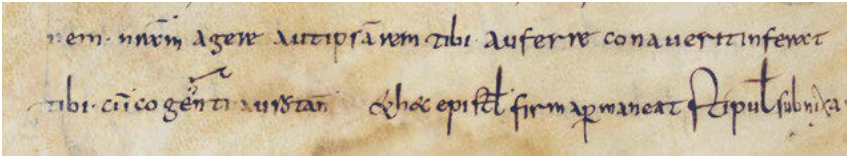 nem · nr̄am agere aut ipsā rem tibi · auferre conaverit inferat
tibi · cū cogenti auri tan̄ & hec epistl firma permaneat stipul subnixa ·